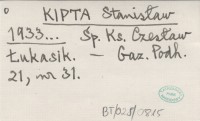 KIPTA Stanisław
1933... Śp. Ks. Czesław
Łukasik. — Gaz. Podh.
21, nr 31.
BT/025/0815